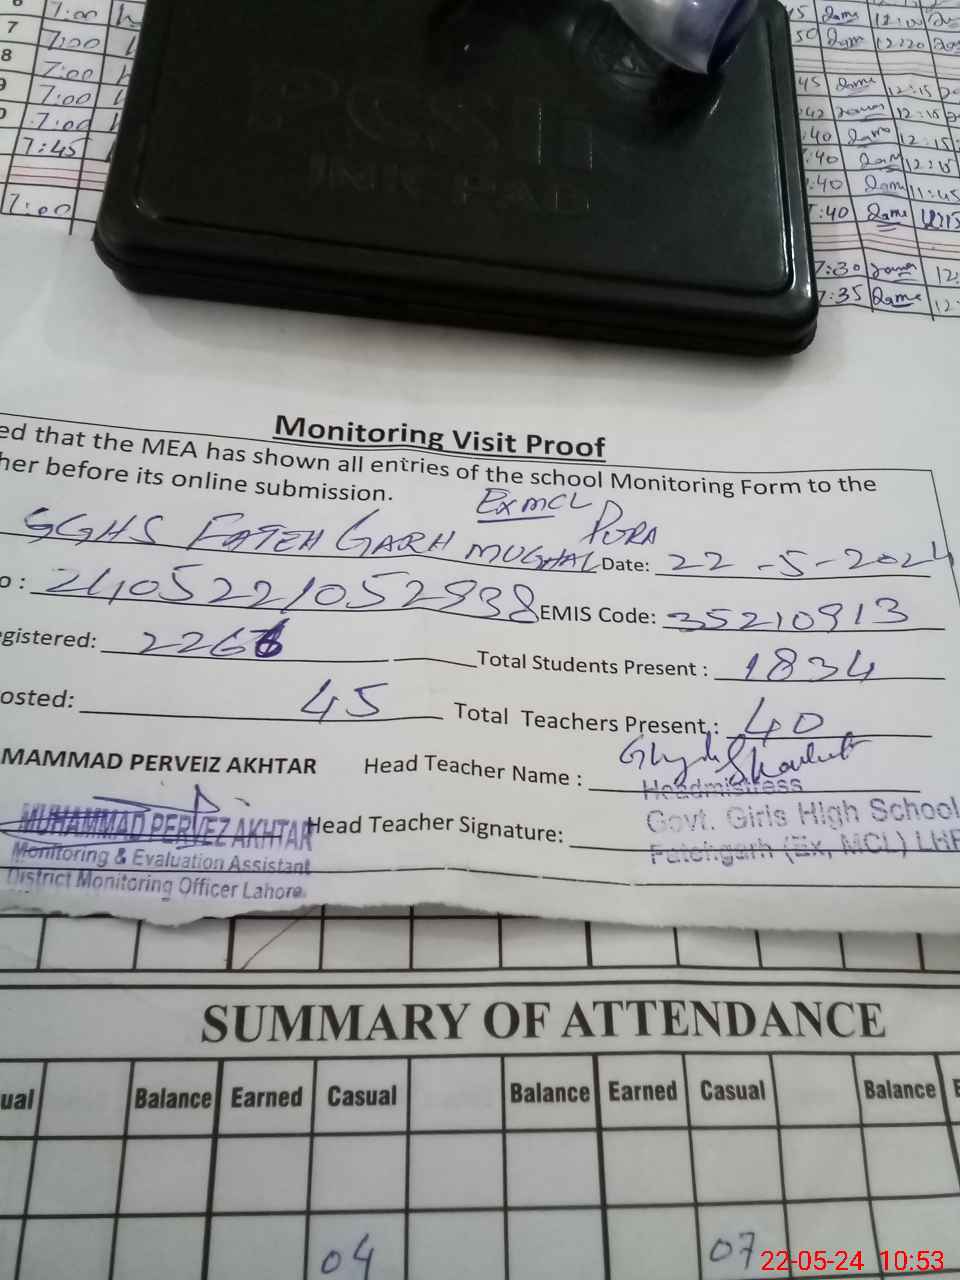 7:00
7
7:00
8
7:00
7:00
7:00
7:45
7:00
PCSIR
INK PAD
45 12:00
50 12:20
45 12:15
42 12:15
:40 12:15
:40 12:15
:40 11:45
7:40 12:15
7:30 12:
7:35 12:
Monitoring Visit Proof
ed that the MEA has shown all entries of the school Monitoring Form to the
her before its online submission.
Ex MCL
GGHS FATEH GARH MUGHAL PURA Date: 22-5-2024
o : 2405221052938 EMIS Code: 35210913
egistered: 2266 Total Students Present : 1834
osted: 45 Total Teachers Present : 40
MAMMAD PERVEIZ AKHTAR Head Teacher Name :
Headmistress
MUHAMMAD PERVEZ AKHTAR Head Teacher Signature: Govt. Girls High School
Monitoring & Evaluation Assistant Fatehgarh (Ex, MCL) LHR
District Monitoring Officer Lahore.
SUMMARY OF ATTENDANCE
ual Balance Earned Casual Balance Earned Casual Balance E
04 07
22-05-24 10:53